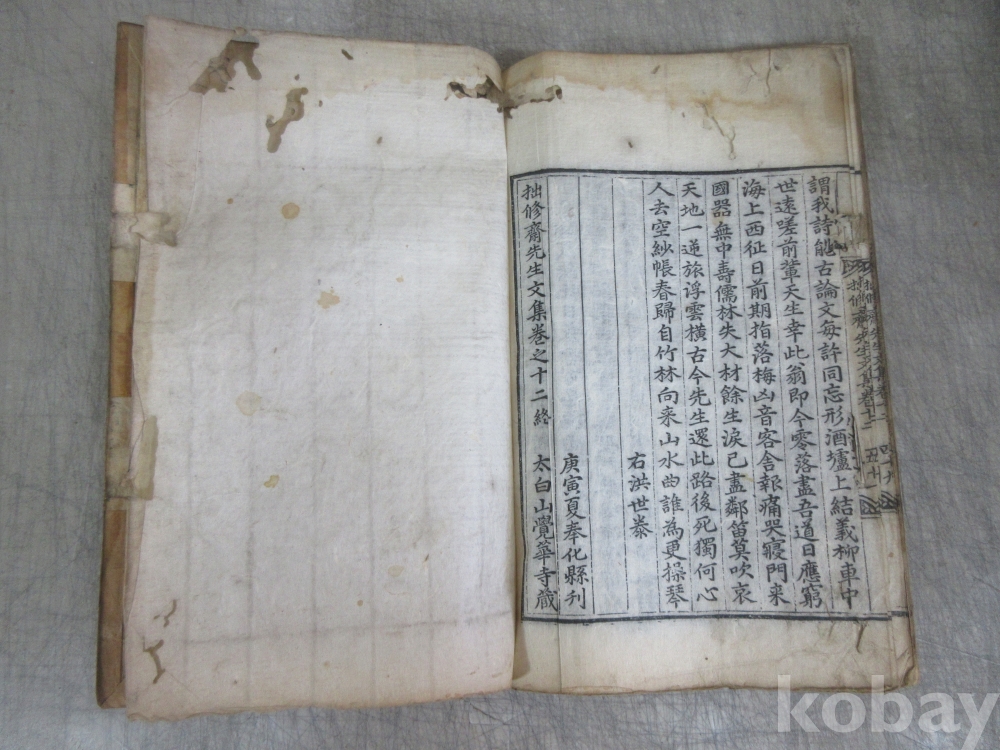 謂我詩能古論文每許同忘形酒壚上結義柳車中
世遠嗟前輩天生幸此翁即今零落盡吾道日應窮
海上西征日前期指落梅凶音客舍報痛哭寢門来
國器無中壽儒林失大材餘生淚已盡鄰笛莫吹哀
天地一逆旅浮雲横古今先生還此路後死獨何心
人去空紗帳春歸自竹林向来山水曲誰為更操琴
右洪世泰
庚寅夏奉化縣刋
拙修齋先生文集卷之十二終
太白山覺華寺蔵
拙修齋先生文集卷十二
五十
kobay